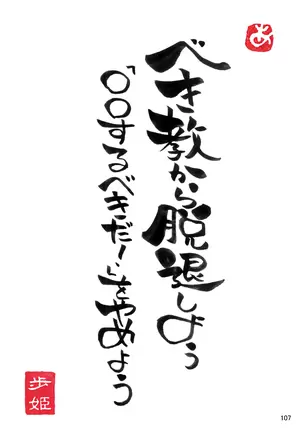 あ
べき教から脱退しよう
「○○するべきだ!」をやめよう
歩姫
107